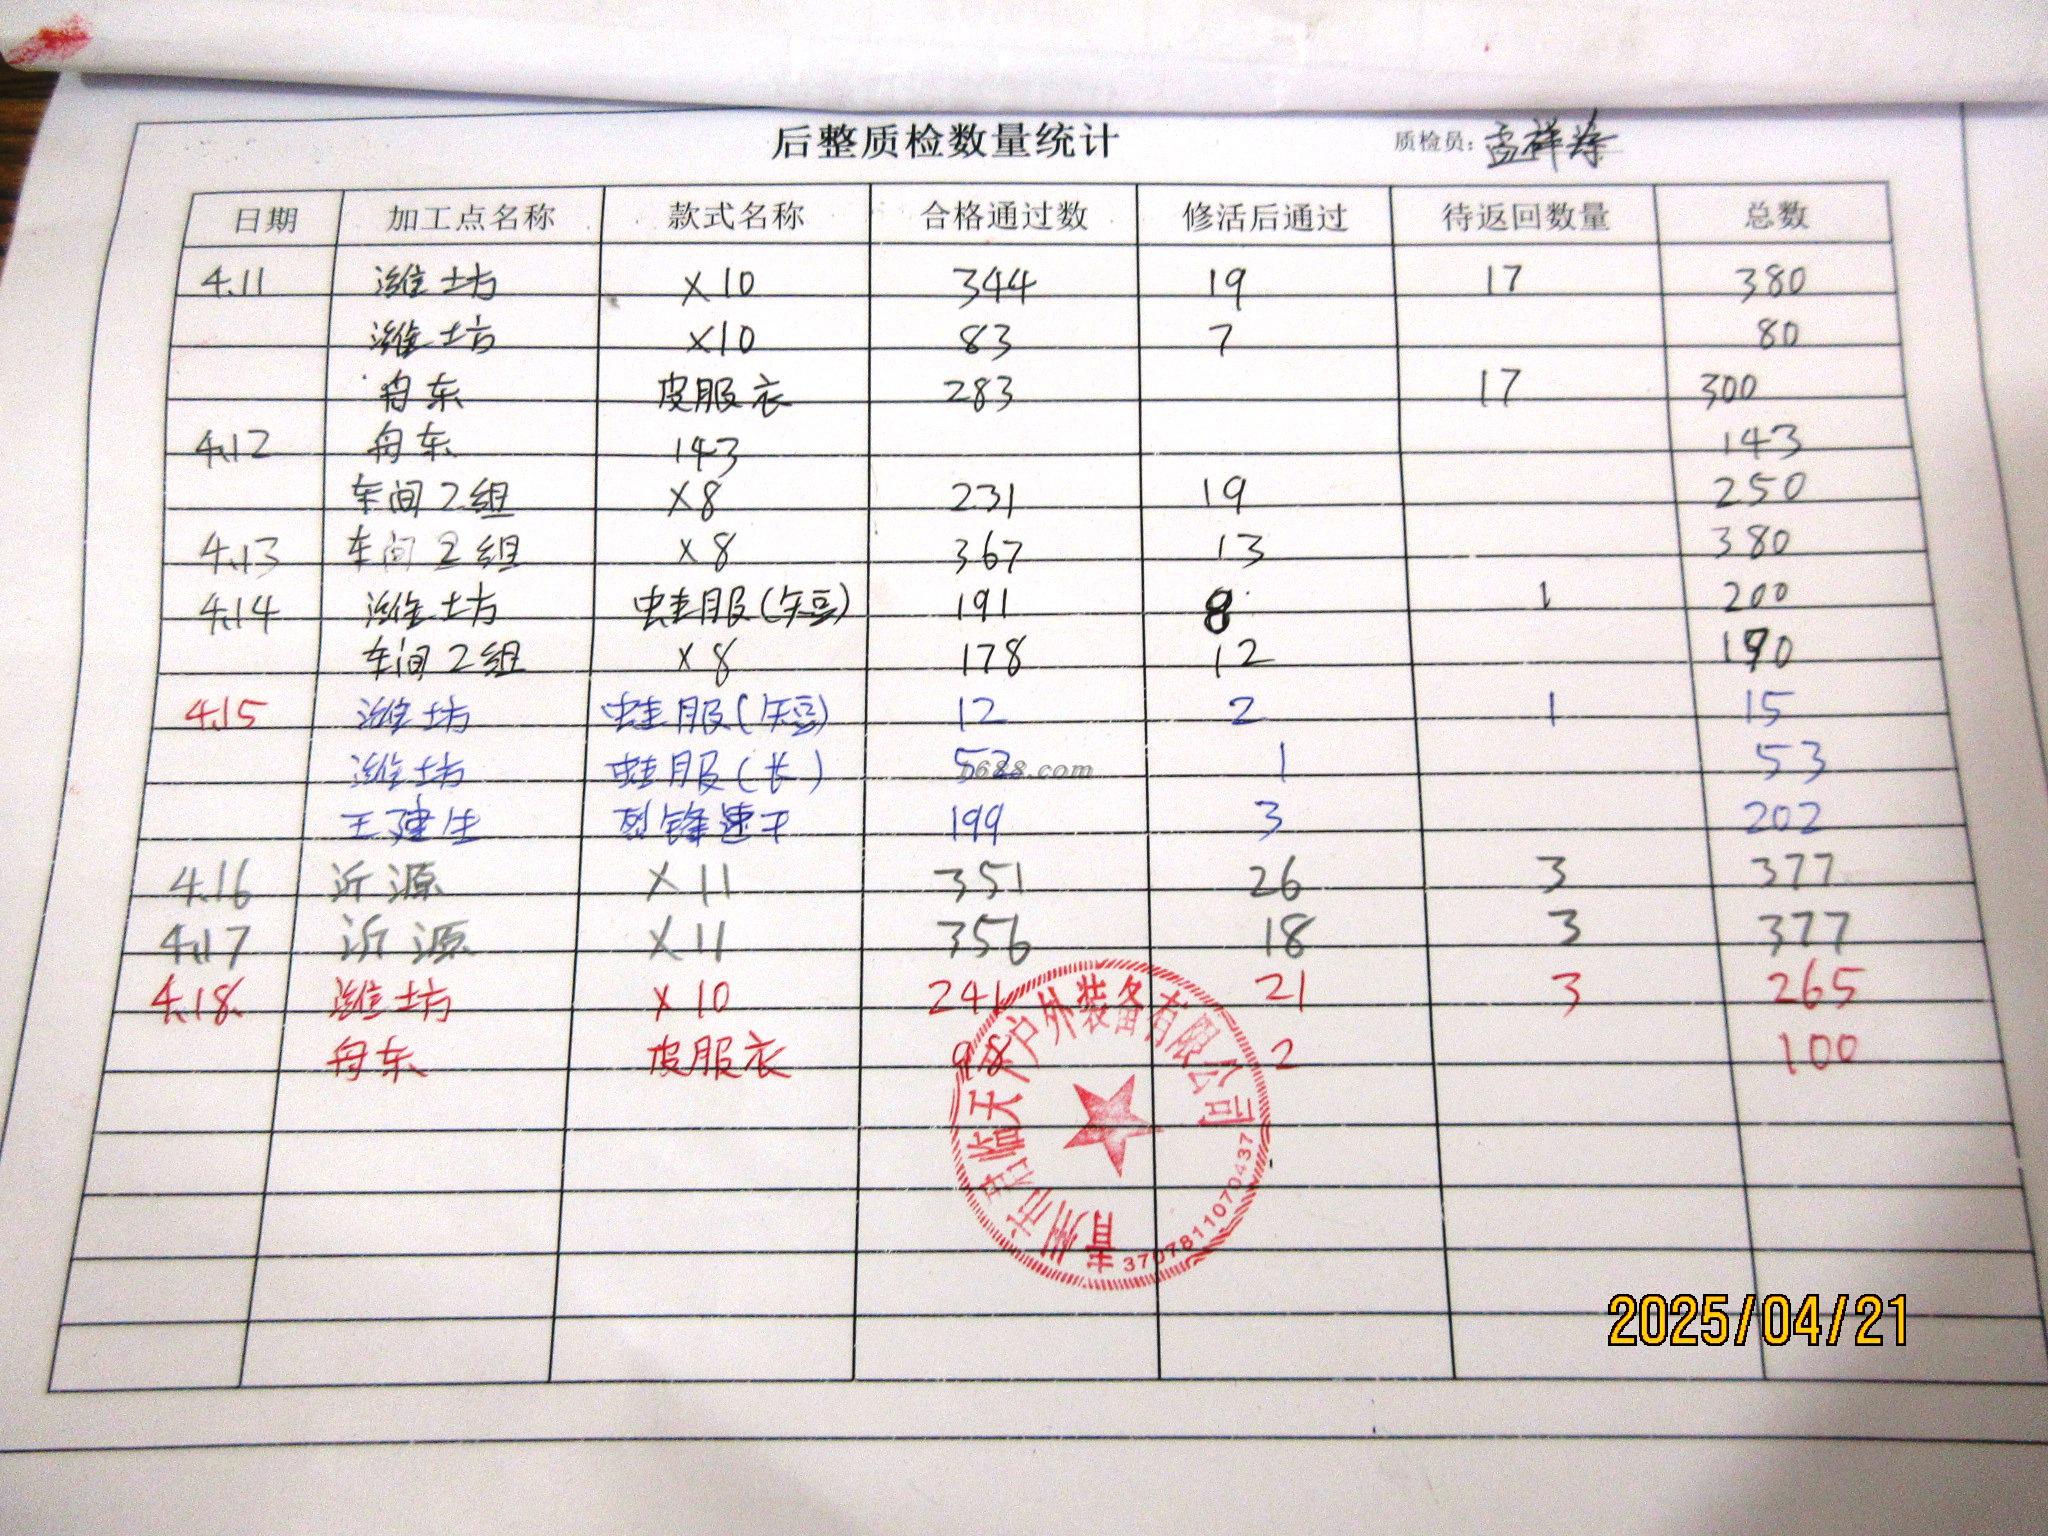 后整质检数量统计 质检员:孟祥珍
日期 加工点名称 款式名称 合格通过数 修活后通过 待返回数量 总数
4.11 潍坊 X10 344 19 17 380
潍坊 X10 83 7 80
舟东 皮服衣 283 17 300
4.12 舟东 143 143
车间2组 X8 231 19 250
4.13 车间2组 X8 367 13 380
4.14 潍坊 蛙服(短) 191 8 1 200
车间2组 X8 178 12 190
4.15 潍坊 蛙服(短) 12 2 1 15
潍坊 蛙服(长) 52 1 53
1688.com
王建生 烈锋速干 199 3 202
4.16 沂源 X11 351 26 3 377
4.17 沂源 X11 356 18 3 377
4.18 潍坊 X10 241 21 3 265
舟东 皮服衣 98 2 100
青州市君临天下户外装备有限公司
3707811070437
2025/04/21